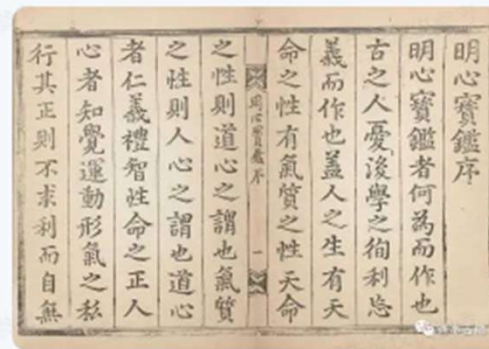 明心寶鑑序
明心寶鑑者何為而作也
古之人憂後學之徇利忘
義而作也盖人之生有天
命之性有氣質之性天命
明心寶鑑序 一
之性則道心之謂也氣質
之性則人心之謂也道心
者仁義禮智性命之正人
心者知覺運動形氣之私
行其正則不求利而自無